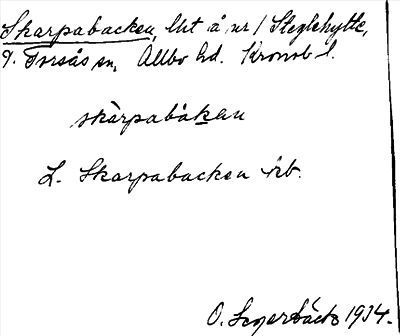 Skarpabacken, lht å nr 1 Steglehytte,
V. Torsås sn, Allbo hd. Kronob l.
skàrpabàkan
L. Skarpabacken ib.
O. 1934.